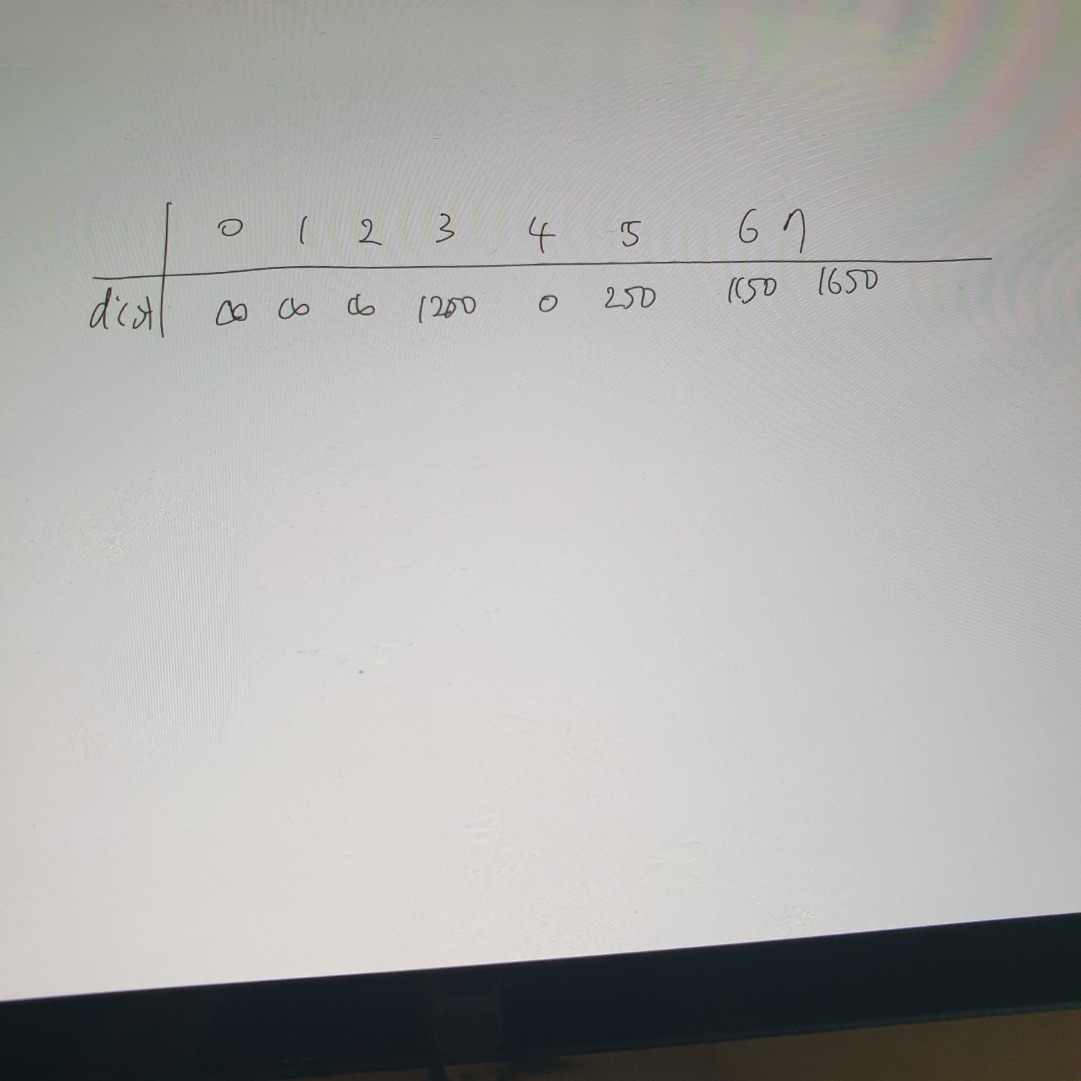 0 1 2 3 4 5 6 7
dist ∞ ∞ ∞ 1200 0 250 1150 1650